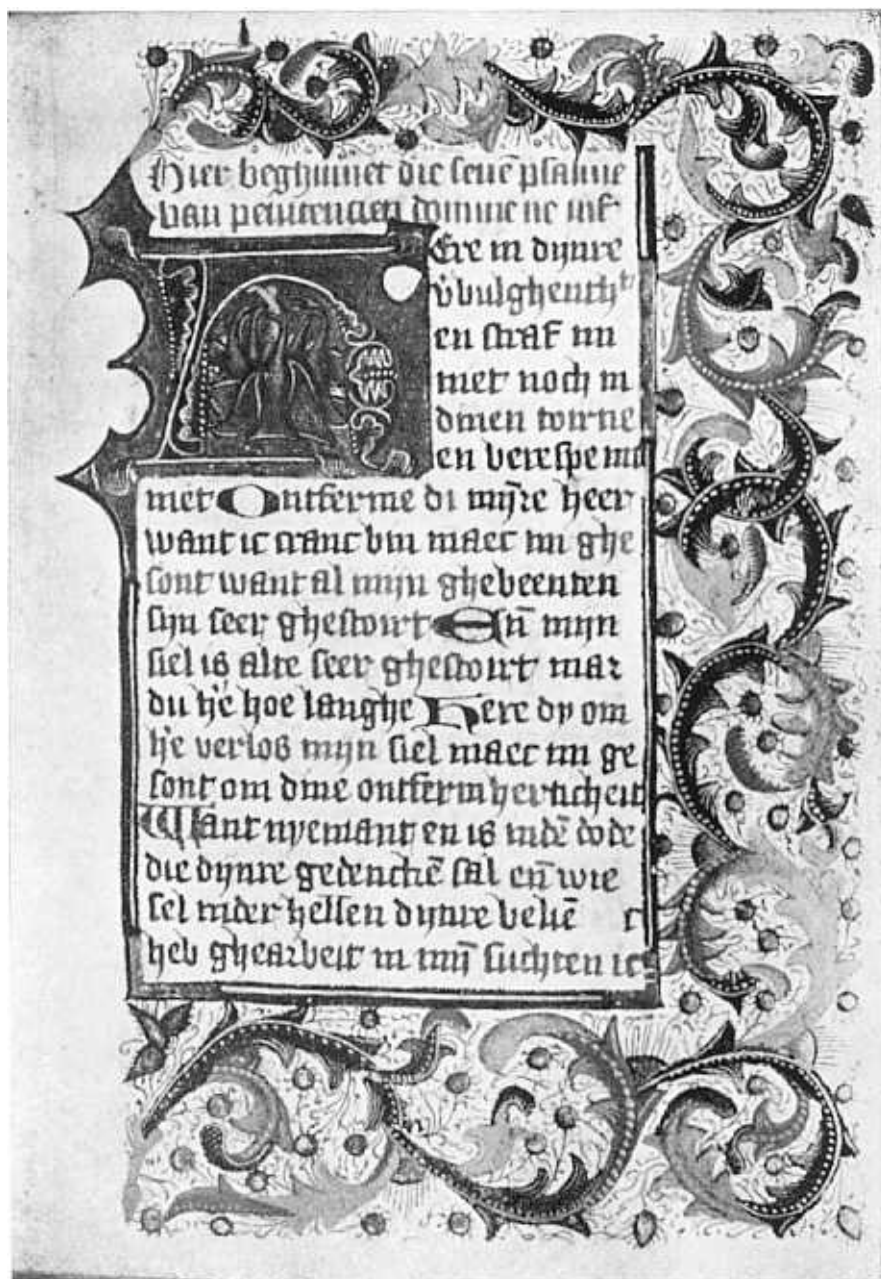 Hier beghinnet die seuē psalme
van penitencien domine ne in f
Ere in dijnre
v̄bulghenth
en straf mi
niet noch in
dinen torne
en berespe mi
niet Ontferme di mijre heer
want ic cranc bin maec mi ghe
sont want al mijn ghebeenten
sijn seer ghestoirt En̄ mijn
siel is alte seer ghestoirt mar
du h'e hoe langhe Here dy om
h'e verlos mijn siel maec mi ge
sont om dine ontfermherticheit
Want nyemant en is indē dode
die dijnre gedenckē sal en̄ wie
sel inder hellen dijnre beliē
heb ghearbeit in mij̄ suchten ic